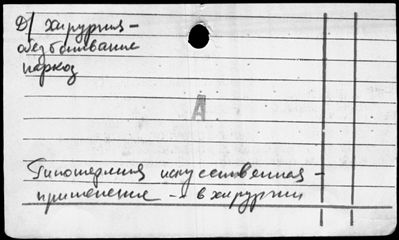 Д/ хирургия –
обезболивание
наркоз
А
Гипотермия искусственная –
применение – в хирургии